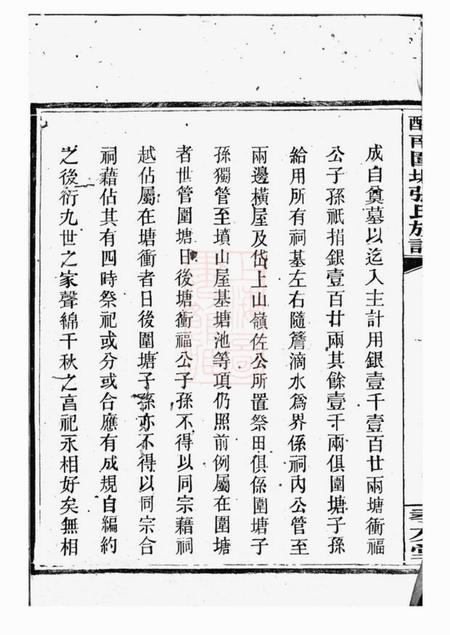 醴南圍塘張氏族譜
成自奠墓以迄入主計用銀壹千壹百廿兩塘衝福
公子孫祇捐銀壹百廿兩其餘壹千兩俱圍塘子孫
給用所有祠基左右隨簷滴水為界係祠內公管至
兩邊橫屋及岱上山嶺佐公所置祭田俱係圍塘子
孫獨管至墳山屋基塘池等項仍照前例屬在圍塘
者世管圍塘日後塘衝福公子孫不得以同宗藉祠
越佔屬在塘衝者日後圍塘子孫亦不得以同宗合
祠藉佔其有四時祭祀或分或合應有成規自編約
之後衍九世之家聲綿千秋之亯祀永相好矣無相